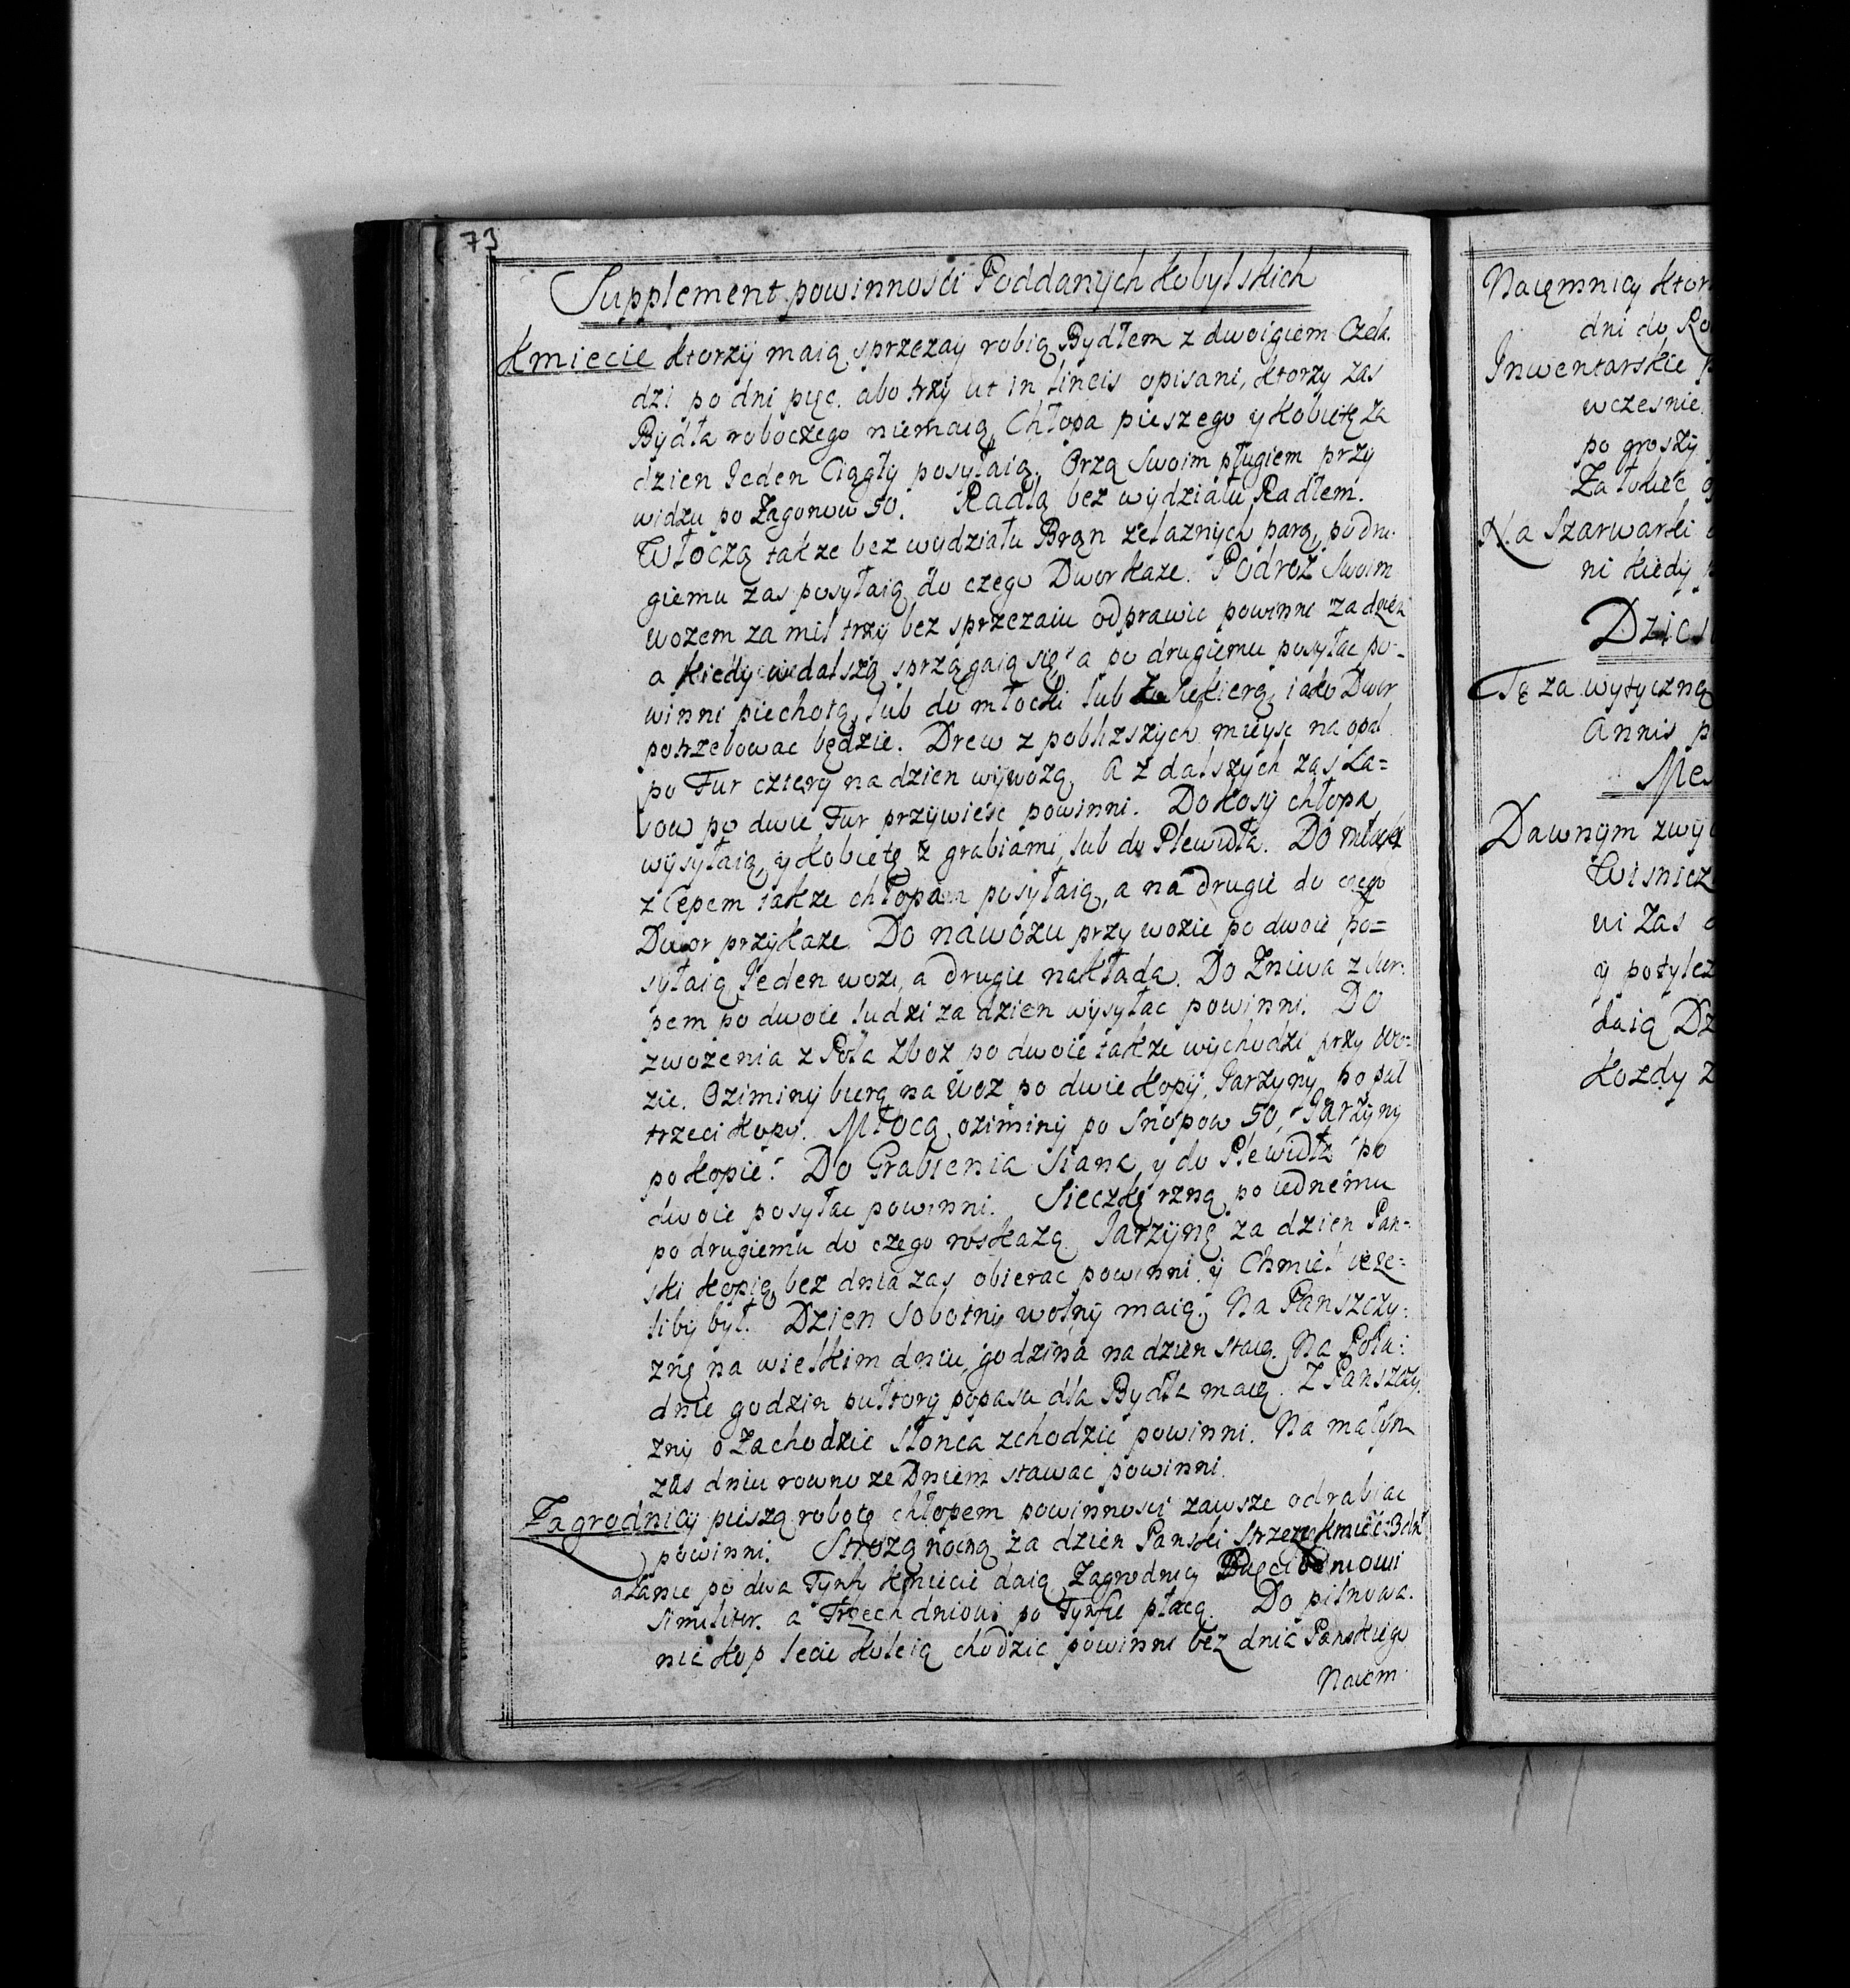 73
Supplement powinnosci Poddanych Kobylskich
Kmiecie Ktorzy maią sprzezay robią Bydłem z dwoigiem Czela.
dzi po dni pięc. abo trzy ut in lineis opisani, Ktorzy zas
Bydła roboczego niemaią, Chłopa pieszego y Kobietę za
dzien Jeden Ciągły posyłaią. Orzą Swoim pługiem przy
widzu po Zagonow 50. Radlą bez wydziału Radłem.
Włoczą takze bez wydziału Bron zelaznych parą, po dru-
giemu zas posyłaią do czego Dwor Kaze. Podroz Swoim
wozem za mil trzy bez sprzezaiu odprawic powinni za dzien
a Kiedy w dalszą sprzągaią się, a po drugiemu posyłac po-
winni piechotą, lub do młocki lub Siekierą iako Dwor
potrzebowac będzie. Drew z pobliszych mieysc na opał
po Fur cztery na dzien wywozą A z dalszych zas La=
sow po dwie Fur przywieśc powinni. Do Kosy chłopa
wysyłaią, y Kobietę z grabiami, lub do Plewidła. Do młocki
z Cepem takze chłopam posyłaią, a na drugie do czego
Dwor przykaze. Do nawozu przy wozie po dwoie po=
syłaią Jeden wozi, a drugie nakłada. Do Zniwa z Sier-
pem po dwoie ludzi za dzien wysyłac powinni. Do
zwozenia z Pola Zboz po dwoie takze wychodzi przy Wo-
zie. Oziminy biorą na Woz po dwie Kopy, Jarzyny po puł
trzeci Kopy. Młocą oziminy po Snopow 50, Jarzyny
po Kopie. Do Grabienia Siana, y do Plewidła po
dwoie posyłac powinni. Sieczkę rzną po iednemu
po drugiemu do czego roskazą. Jarzynę za dzien Pan-
ski Kopią, bez dnia zas obierac powinni, y Chmiel ieze-
liby był. Dzien Sobotny wolny maią. Na Panszczy-
znę na wielkim dniu, godzina na dzien staią. Na Połu-
dnie godzin pułtory popasu dla Bydła maią. Z Panszczy
zny o Zachodzie Słonca zchodzic powinni. Na małym
zas dniu rowno ze Dniem stawac powinni.
Zagrodnicy pieszą robotę chłopem powinnosci zawsze odrabiac
powinni. Strozą nocną za dzien Panski Strzezą Kmieć: 3 dn
po dwa Tynfy Kmiecie daią Zagrodnicy Pięciodniowi
Similiter. a Trzechdniowi po Tynfie płacą. Do pilnowa-
nie Kop lecie Koleią chodzic powinni bez dnia Panskiego
Naiem
Naięmnicy Ktor
dni do
Inwentarskie
wczesnie.
po groszy
Na Szarwarki
ni kiedy
Tę za wytyczną
Annis
Dawnym
ui zas
y
daią
Kozdy